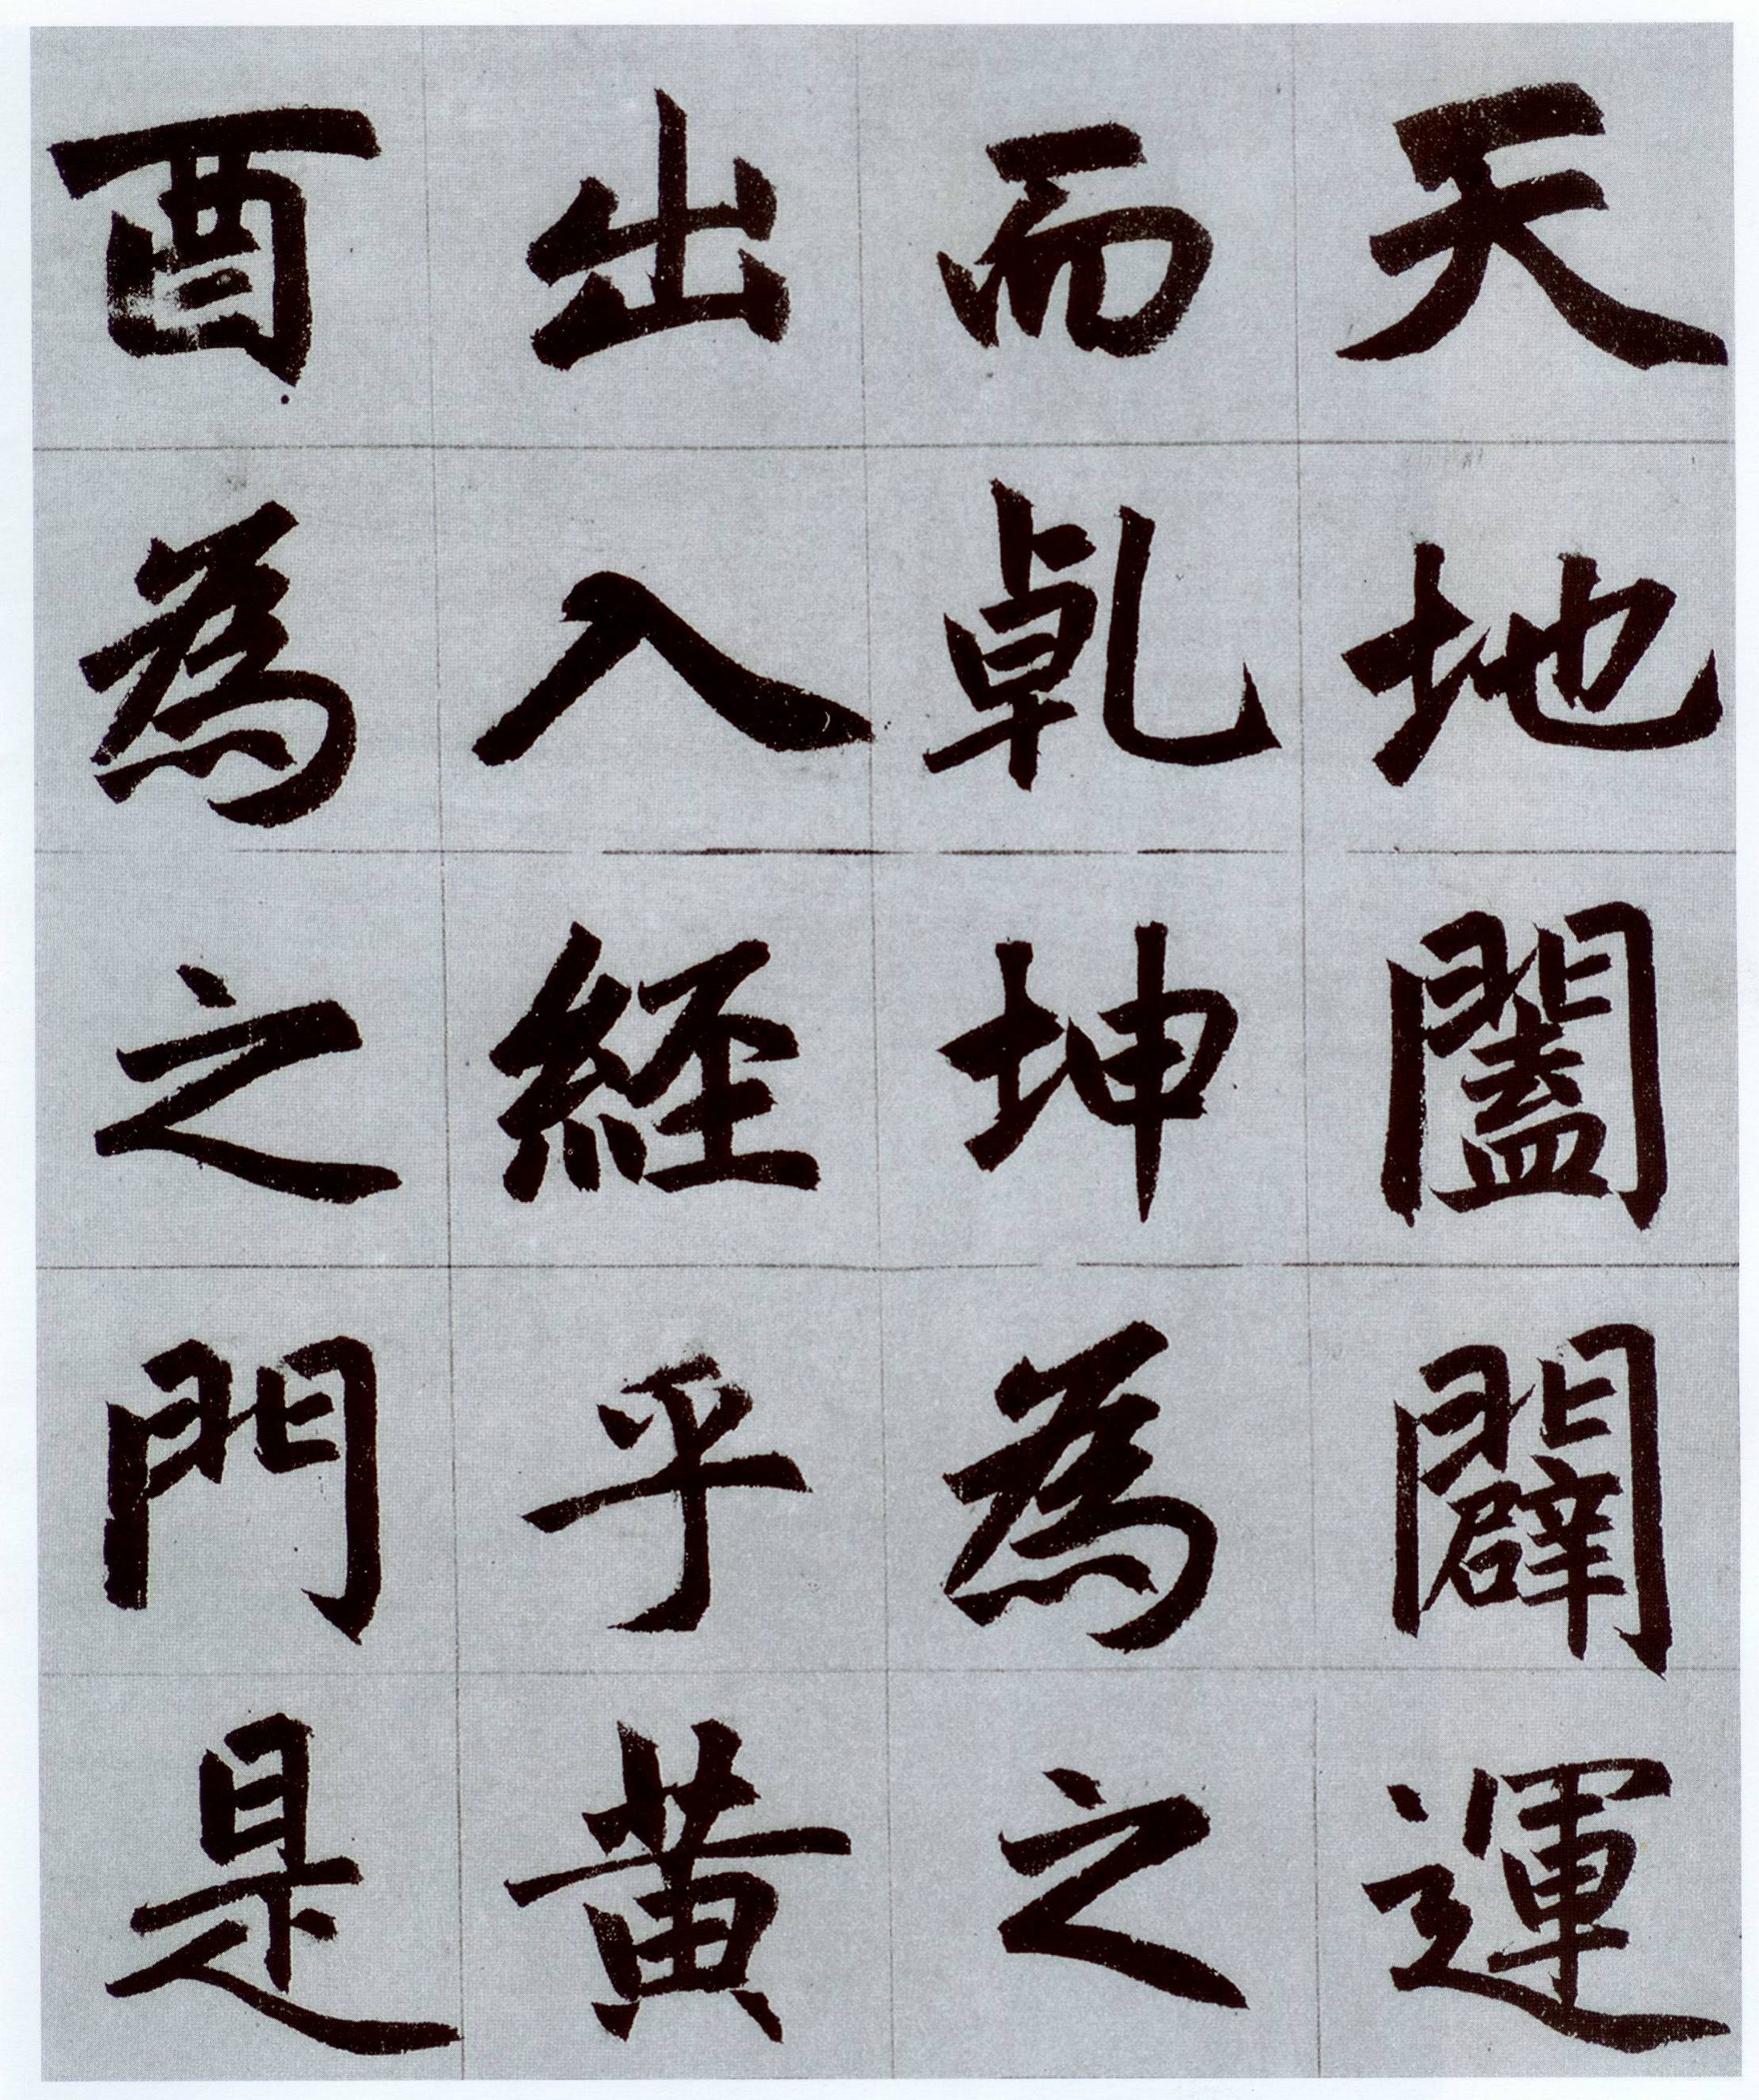 天地闔闢運
而乹坤為之
出入經乎黃
酉為之門是